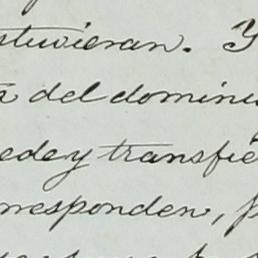 stuvieran. Y
a del domini
ede y transfie
rresponden, p